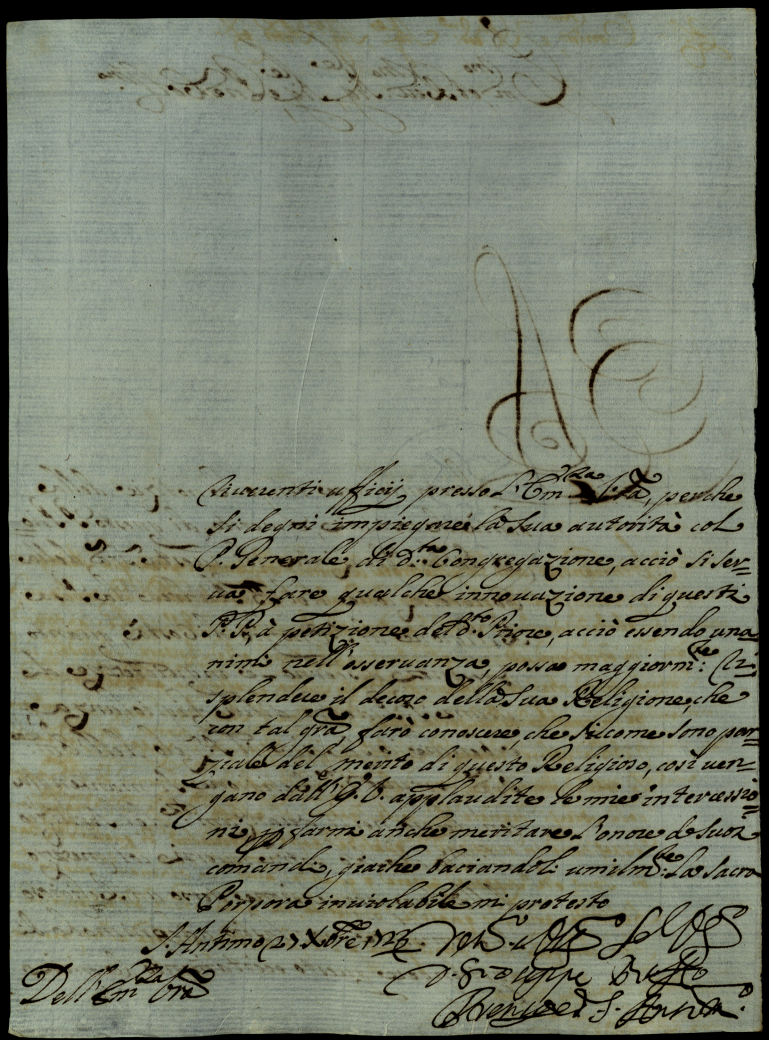 riverenti ufficij presso l'Em.za V.ra, perche
si degni impiegare la sua autorità col
P. Generale di d.ta Congregazione, acciò si ser=
va fare qualche innovazione di questi
P.P. à petizione del d.to Priore, acciò essendo una=
nimi nell'osservanza, possa maggiorm.te ri=
splendere il decoro della sua Religione, che
con tal grã farò conoscere, che siccome sono par=
ziale del merito di questo Religioso, così ven=
gano dall' applaudite le mie intercessio=
ni, p farmi anche meritare l'onore de suoi
comandi, giache baciandoli umilm.te la sacra
Porpora inviolabile mi protesto
S. Antimo 27 Xbre
Dell'Em.za V.ra
D. Giuseppe Ruffo